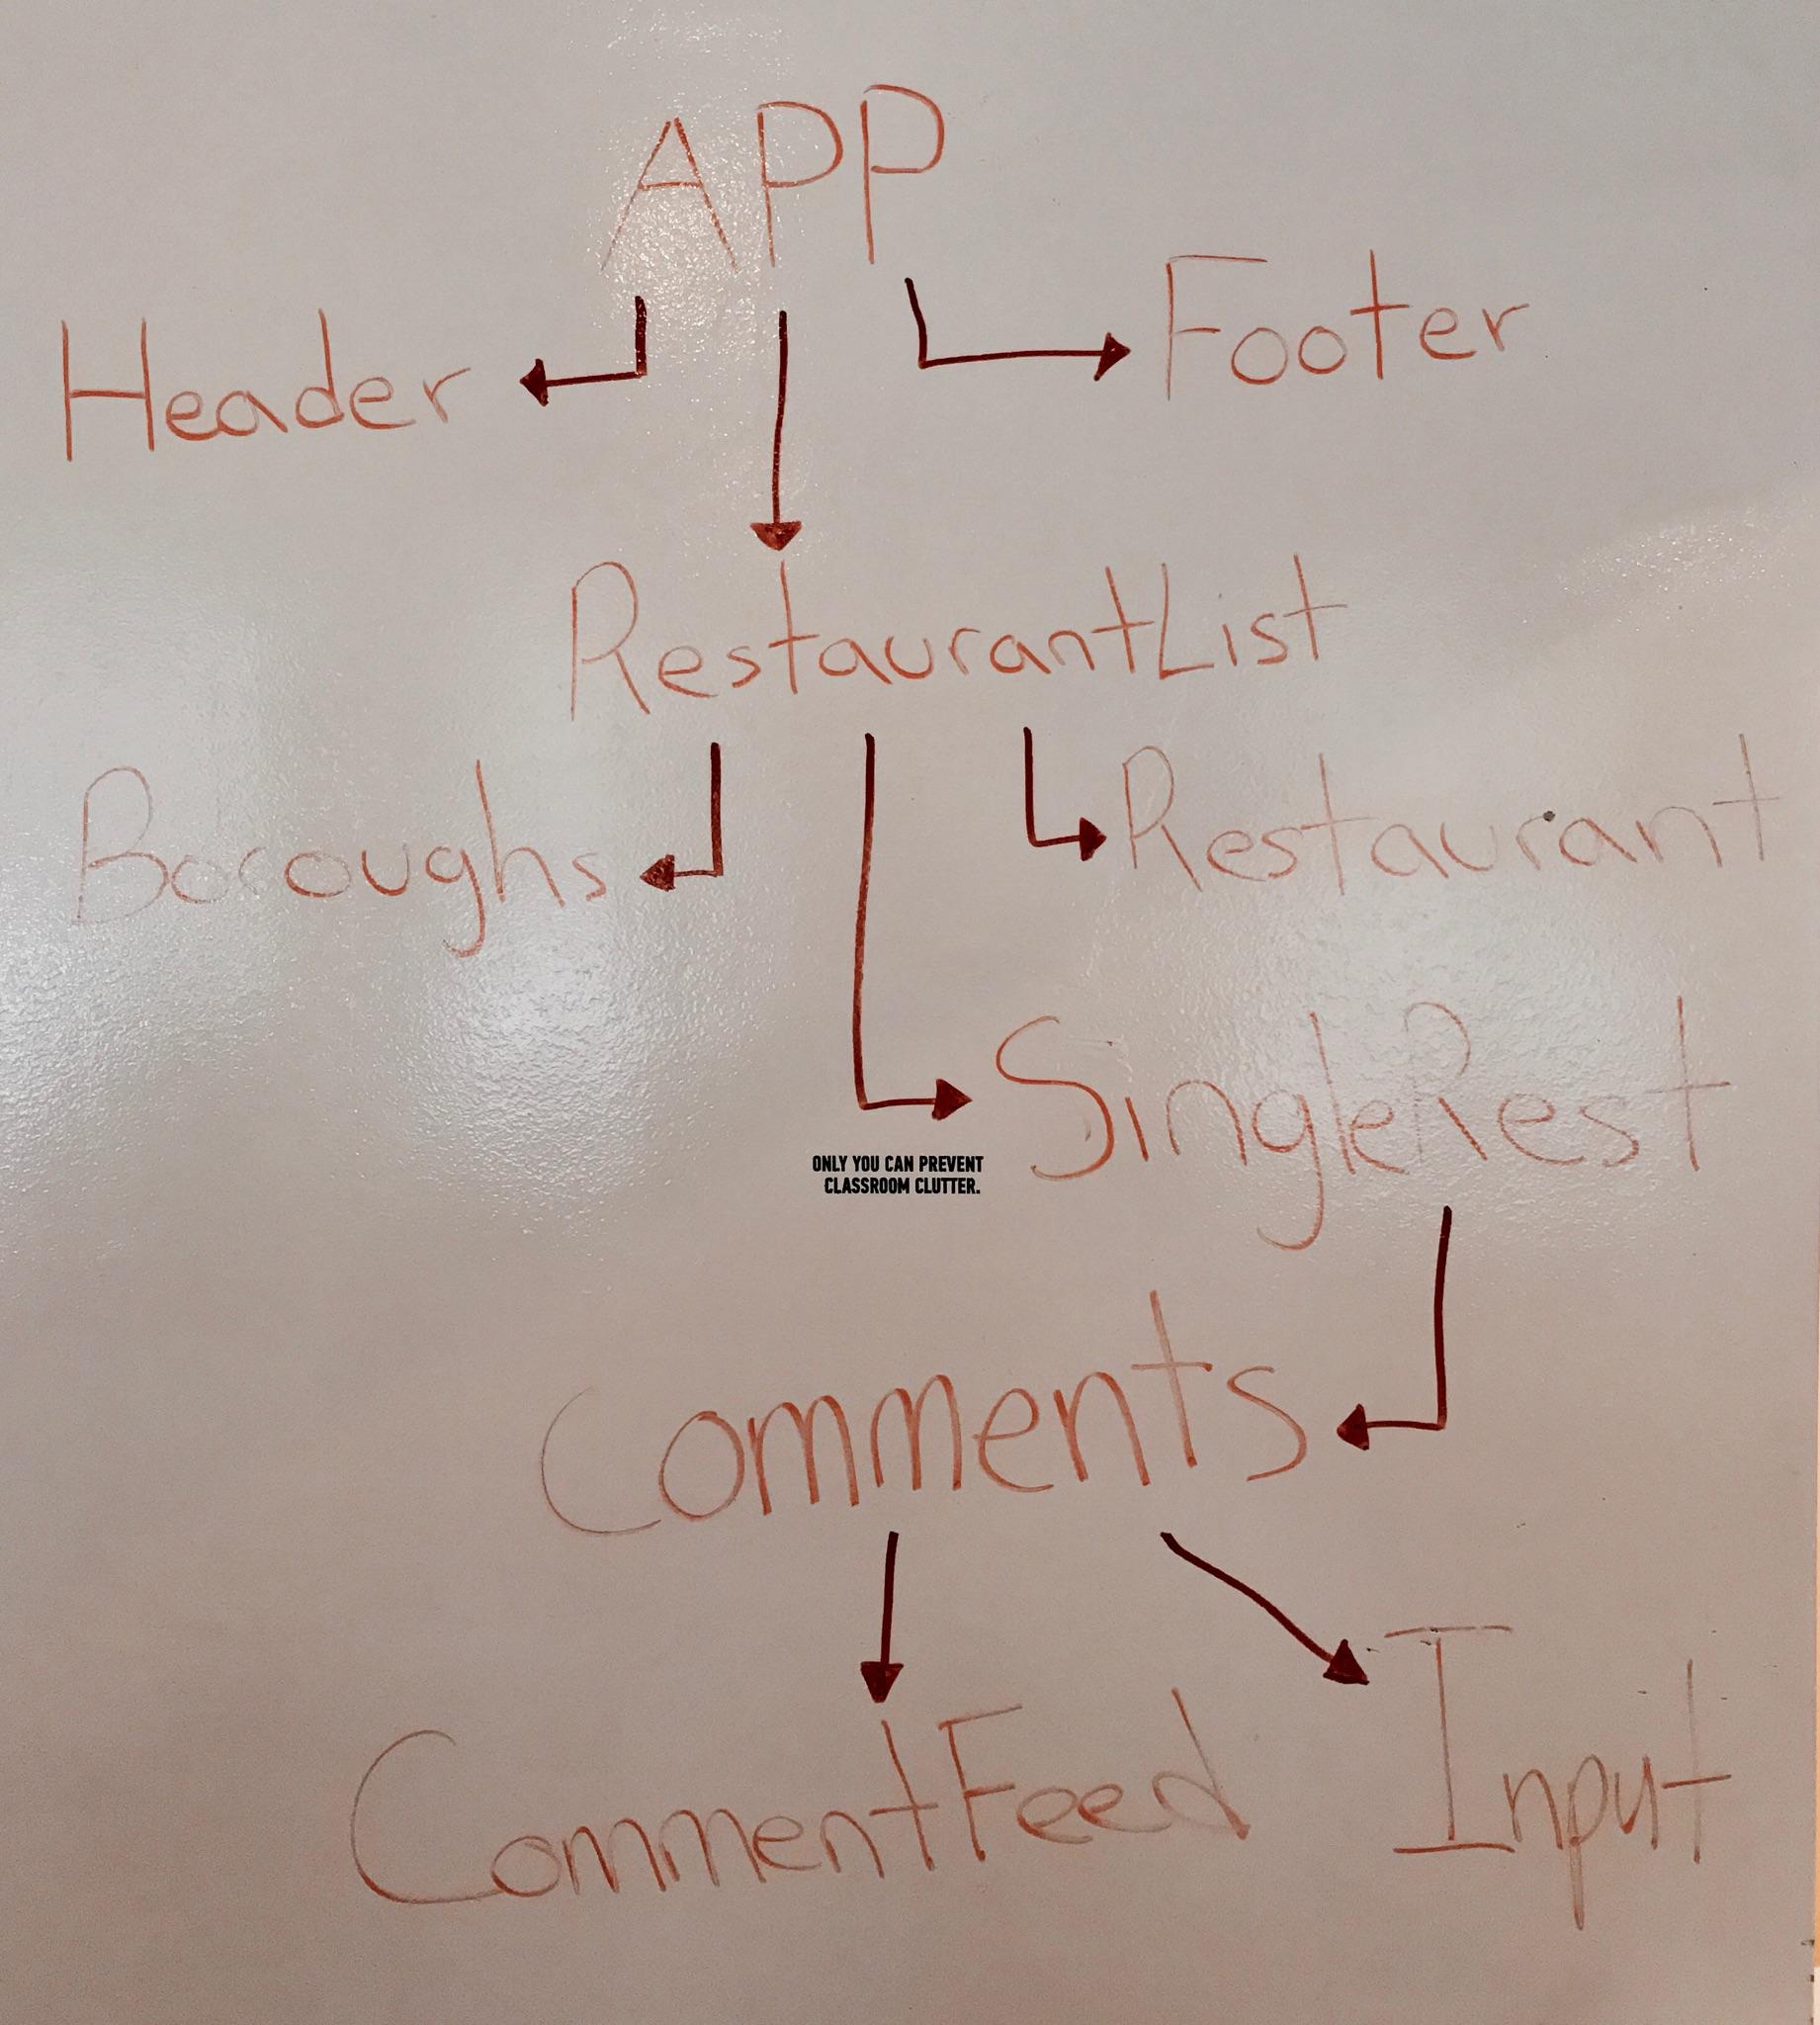 APP
Header
Footer
RestaurantList
Boroughs
Restaurant
SingleRest
ONLY YOU CAN PREVENT
CLASSROOM CLUTTER.
Comments
CommentFeed
Input